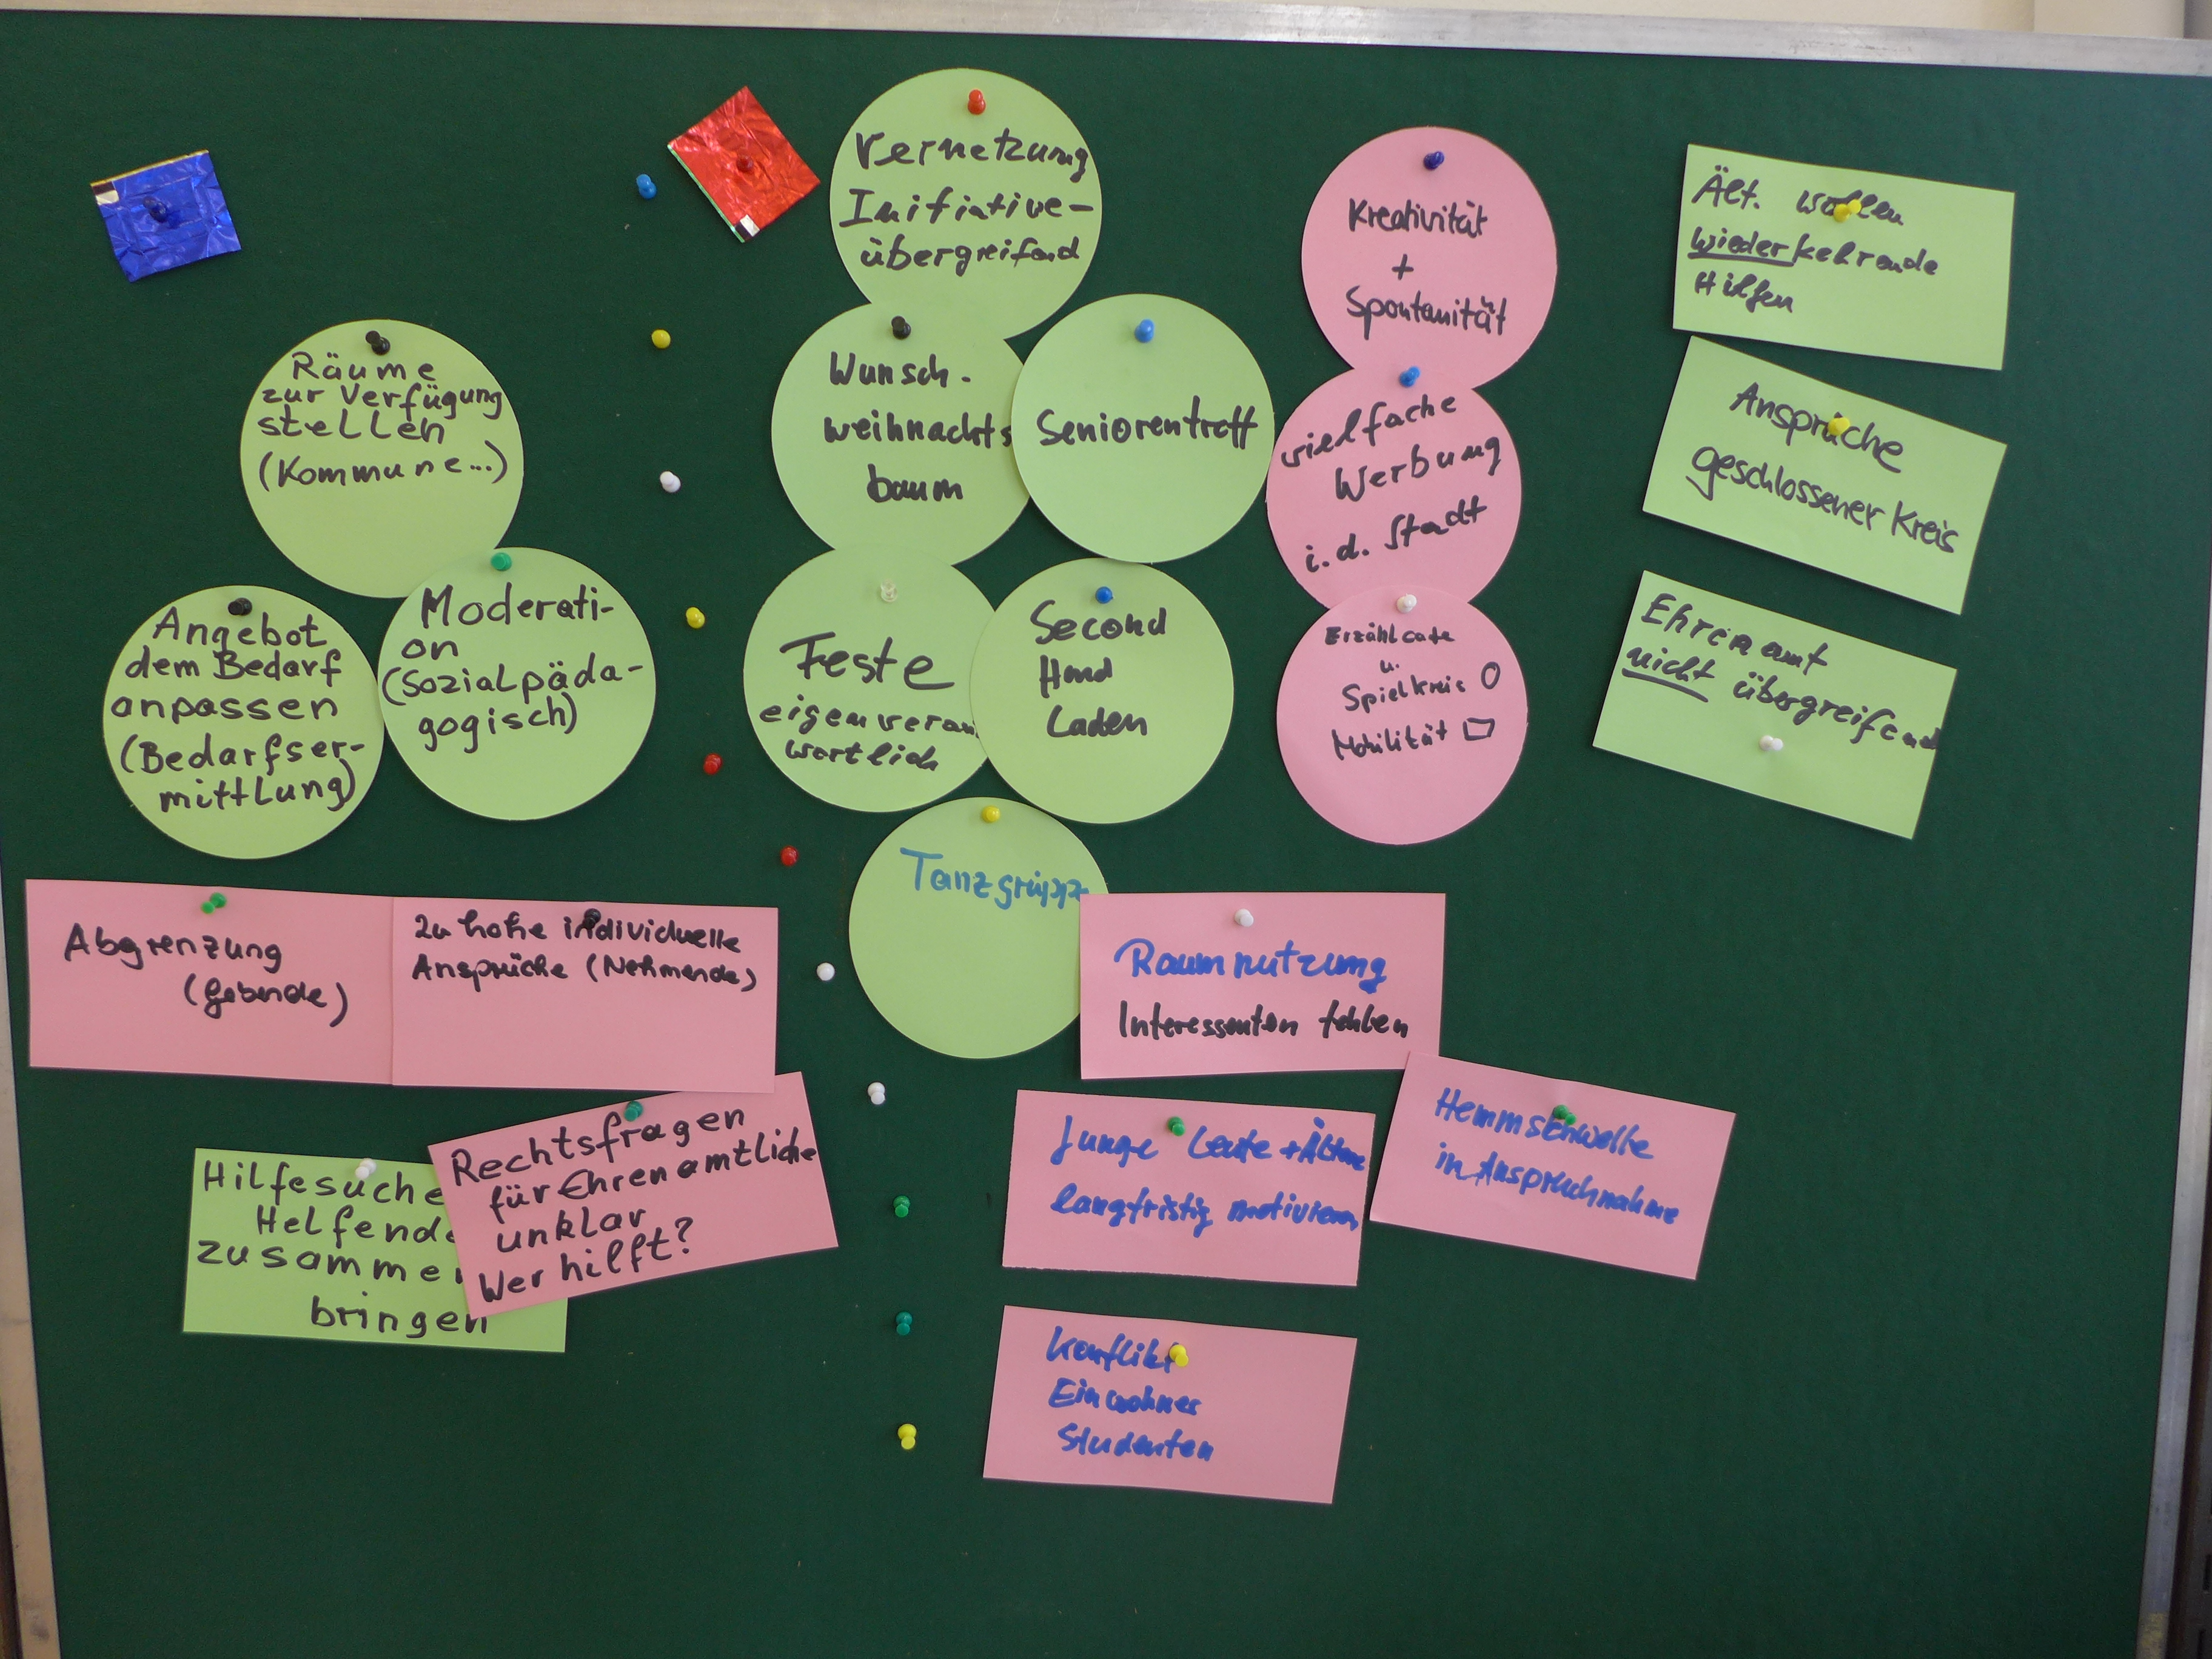 Vernetzung
Initiative-
übergreifend
Räume
zur Verfügung
stellen
(Kommune...)
Angebot
dem Bedarf
anpassen
(Bedarfser-
mittlung)
Moderati-
on
(Sozialpäda-
gogisch)
Wunsch-
weihnachts
baum
Seniorentreff
Feste
eigenveran
wortlich
Second
Hand
Laden
Tanzgruppe
Kreativität
+
Spontanität
vielfache
Werbung
i.d. Stadt
Erzählcafe
u.
Spielkreis
Mobilität
Ält. wollen
wiederkehrende
Hilfen
Ansprüche
geschlossener Kreis
Ehrenamt
nicht übergreifend
Abgrenzung
(Gebende)
Zu hohe individuelle
Ansprüche (Nehmende)
Hilfesuche
Helfende
zusammen
bringen
Rechtsfragen
für Ehrenamtliche
unklar
Wer hilft?
Raumnutzung
Interessenten fehlen
Junge Leute + Ältere
langfristig motivieren
Hemmschwelle
in Anspruchnahme
Konflikt
Einwohner
Studenten